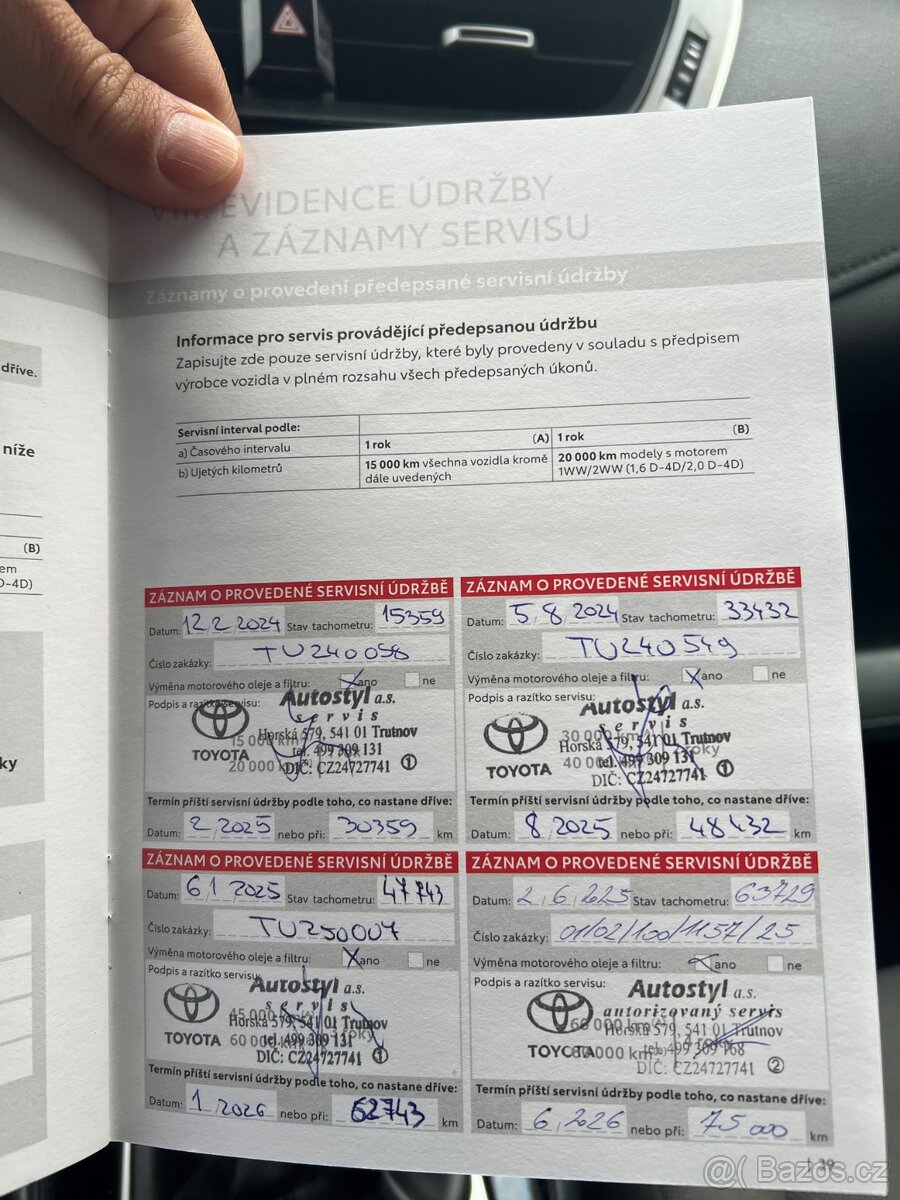 VIII. EVIDENCE ÚDRŽBY
A ZÁZNAMY SERVISU
Záznamy o provedení předepsané servisní údržby
Informace pro servis provádějící předepsanou údržbu
Zapisujte zde pouze servisní údržby, které byly provedeny v souladu s předpisem
výrobce vozidla v plném rozsahu všech předepsaných úkonů.
dříve.
níže
(B)
D-4D)
Servisní interval podle:
a) Časového intervalu 1 rok (A) 1 rok (B)
b) Ujetých kilometrů 15 000 km všechna vozidla kromě 20 000 km modely s motorem
dále uvedených 1WW/2WW (1,6 D-4D/2,0 D-4D)
ZÁZNAM O PROVEDENÉ SERVISNÍ ÚDRŽBĚ
Datum: 12 2 2024 Stav tachometru: 15359
Číslo zakázky: TU240058
Výměna motorového oleje a filtru: X ano ne
Podpis a razítko servisu:
Autostyl a.s.
servis
Horská 579, 541 01 Trutnov
15 000 km
tel. 499 309 131
TOYOTA
20 000 km
DIČ: CZ24727741 1
Termín příští servisní údržby podle toho, co nastane dříve:
Datum: 2 2025 nebo při: 30359 km
ZÁZNAM O PROVEDENÉ SERVISNÍ ÚDRŽBĚ
Datum: 5 8 2024 Stav tachometru: 33432
Číslo zakázky: TU240549
Výměna motorového oleje a filtru: X ano ne
Podpis a razítko servisu:
Autostyl a.s.
servis
30 000 km
Horská 579, 541 01 Trutnov
roky
tel. 499 309 131
TOYOTA
40 000 km
DIČ: CZ24727741 1
Termín příští servisní údržby podle toho, co nastane dříve:
Datum: 8 2025 nebo při: 48432 km
ZÁZNAM O PROVEDENÉ SERVISNÍ ÚDRŽBĚ
Datum: 6 1 2025 Stav tachometru: 47743
Číslo zakázky: TU250007
Výměna motorového oleje a filtru: X ano ne
Podpis a razítko servisu:
Autostyl a.s.
servis
45 000 km
Horská 579, 541 01 Trutnov
roky
tel. 499 309 131
TOYOTA
60 000 km
DIČ: CZ24727741 1
Termín příští servisní údržby podle toho, co nastane dříve:
Datum: 1 2026 nebo při: 62743 km
ZÁZNAM O PROVEDENÉ SERVISNÍ ÚDRŽBĚ
Datum: 2 6 2025 Stav tachometru: 63729
Číslo zakázky: 01/02/100/1157/25
Výměna motorového oleje a filtru: X ano ne
Podpis a razítko servisu:
Autostyl a.s.
autorizovaný servis
60 000 km
Horská 579, 541 01 Trutnov
tel. 499 309 168
TOYOTA
80 000 km
DIČ: CZ24727741 2
Termín příští servisní údržby podle toho, co nastane dříve:
Datum: 6 2026 nebo při: 75 000 km
| 39
Bazoš.cz